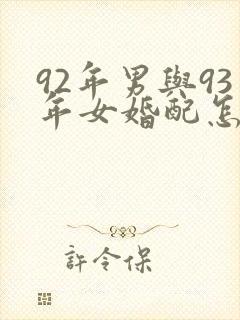 92年男與93
年女婚配怎
許令保